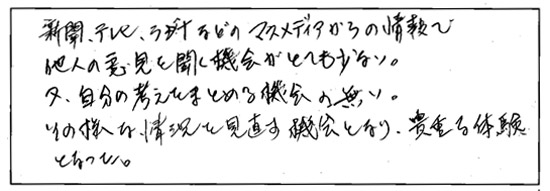 新聞、テレビ、ラジオなどのマスメディアからの情報で
他人の意見を聞く機会がとても少ない。
又、自分の考えをまとめる機会も無い。
その様な情況を見直す機会となり、貴重な体験
となった。